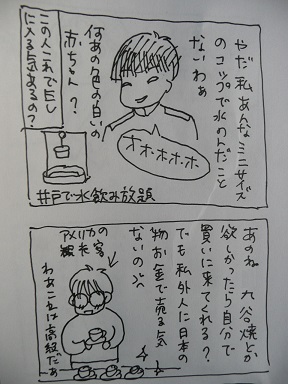 やだ私あんなミニサイズ
のコップで水のんだこと
ないわぁ
オホホホホ
何あの色の白いの
赤ちゃん?
この人これで巨し
に入る気あるの?
井戸で水飲み放題
あのね 九谷焼とか
欲しかったら自分で
買いに来てくれる?
でも私外人に日本の
物お金で売る気
ないの
アメリカの客
わぁこれは高級だぁ